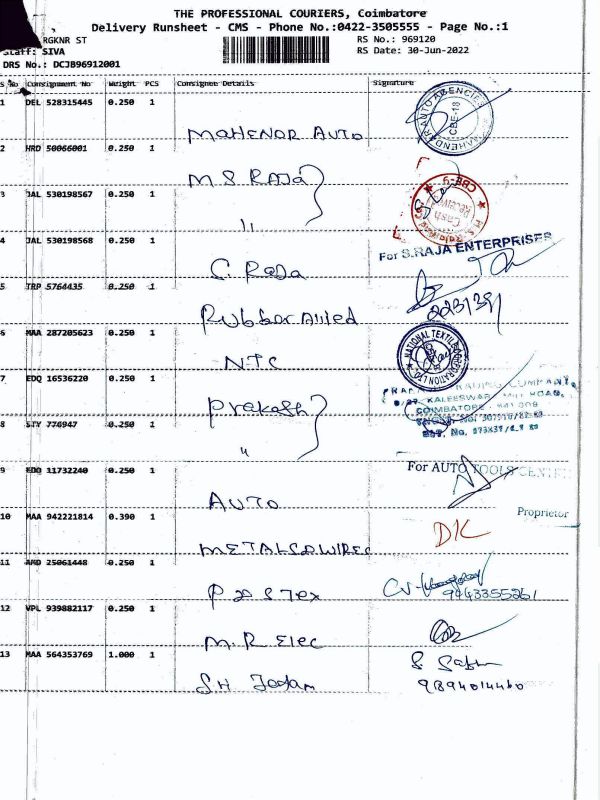 THE PROFESSIONAL COURIERS, Coimbatore
Delivery Runsheet - CMS - Phone No.:0422-3505555 - Page No.:1
RGKNR ST
RS No.: 969120
Staff: SIVA
RS Date: 30-Jun-2022
DRS No.: DCJB96912001
S No Consignment No Weight PCS Consignee Details Signature
1 DEL 528315445 0.250 1
MAHENDR AUTO
MAHENDER AUTO AGENCIES CBE-18
2 HRD 50066001 0.250 1
M S RAJA
CBE-9
Cash
Received
3 JAL 530198567 0.250 1
"
4 JAL 530198568 0.250 1
For S.RAJA ENTERPRISES
S. RAJA
5 TRP 5764435 0.250 1
Rubber Allied
6 MAA 287205623 0.250 1
NTC
NATIONAL TEXTILE CORPORATION LTD
7 EDQ 16536220 0.250 1
TRADING COMPANY
KALEESWARA MILL ROAD,
COIMBATORE - 641 009
Prakash
8 STY 776947 0.250 1
"
9 EDQ 11732240 0.250 1
For AUTO TOOLS CENTRE
AUTO
Proprietor
10 MAA 942221814 0.390 1
DK
METALS & WIRES
11 AMD 25061448 0.250 1
9443355261
12 VPL 939882117 0.250 1
M.R Elec
13 MAA 564353769 1.000 1
9894014460